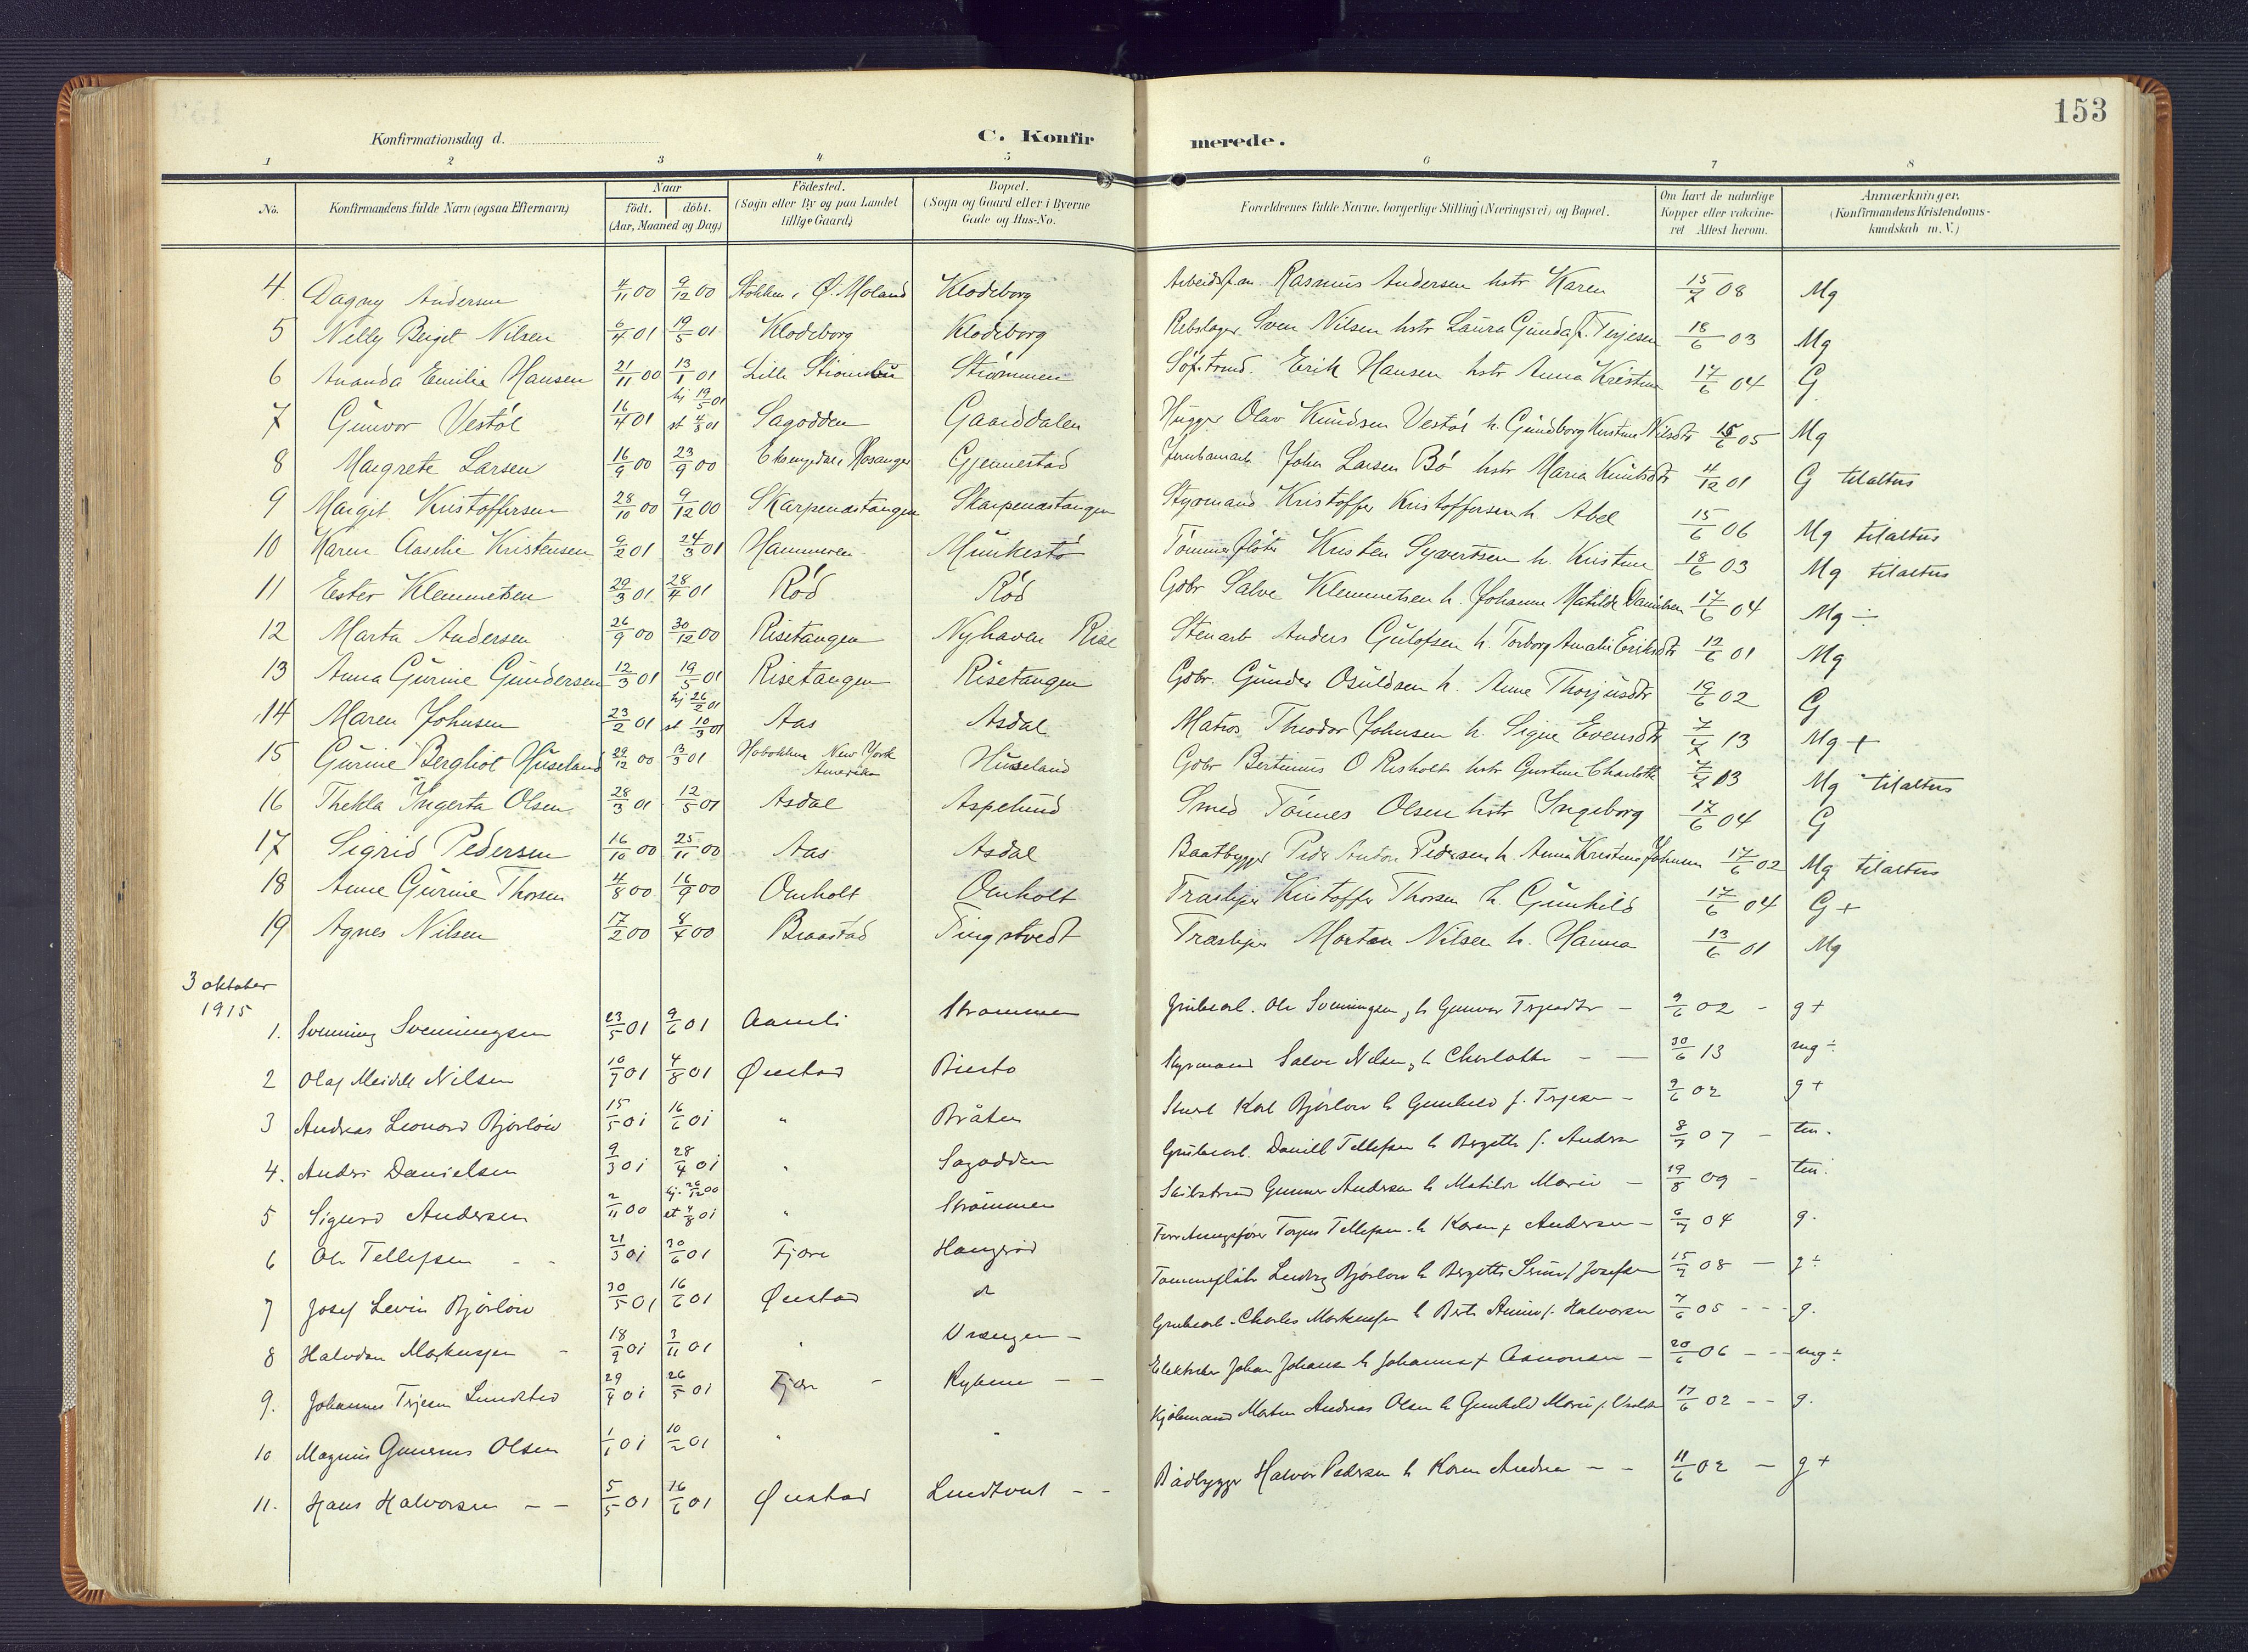 153
Konfirmationsdag d.
C. Konfirmerede.
1 2 3 4 5 6 7 8
No. Konfirmandens fulde Navn (ogsaa Efternavn) Naar født. døbt. (Aar, Maaned og Dag) Fødested. (Sogn eller By og paa Landet tillige Gaard) Bopæl. (Sogn og Gaard eller i Byerne Gade og Hus-No. Forældrenes fulde Navne, borgerlige Stilling (Næringsvei) og Bopæl. Om havt de naturlige Kopper eller vakcineret Attest herom. Anmærkninger. (Konfirmandens Kristendomskundskab m. V.)
4 Dagny Andersen 4/11 00 9/12 00 Stokken i Ø. Moland Klodeborg Rasmus Andersen hstr Karen 15/7 08 Mg
5 Nelly Bergit Nilsen 6/4 01 19/5 01 Klodeborg Klodeborg Rebslager Sven Nilsen hstr Laura Gunda f. Terjesen 18/6 03 Mg
6 Ananda Emilie Hansen 21/11 00 13/1 01 Lille Strømmen Erik Hansen hstr Anna Kristine 17/6 04 G
7 Gunvor Vestøl 16/4 01 hj 19/5 01 st 4/8 01 Sagodden Gaarddalen Hugger Olav Knudsen Vestøl h. Gundborg Kirstine Nilsdtr 15/6 05 Mg
8 Margrete Larsen 16/9 00 23/9 00 Gjennestad John Larsen Bø hstr Maria Knutsdtr 4/12 01 G tilaltus
9 Margit Kristoffersen 28/10 00 9/12 00 Skarpenæstangen Skarpenæstangen Styrmand Kristoffer Kristoffersen h. Abel 15/6 06 Mg tilaltus
10 Karen Aaselie Kristensen 9/2 01 24/3 01 Hammeren Munkestø Tømmerfløter Kristen Syvertsen h. Kirstine 18/6 03 Mg tilaltus
11 Ester Klemmetsen 29/3 01 28/4 01 Rød Rød Gdbr Salve Klemmetsen h. Johanne Matilde Danielsen 17/6 04 Mg ÷
12 Marta Andersen 26/9 00 30/12 00 Risetangen Nyhaven Rise Stenarb Anders Gulofsen h. Torborg Amalie Eriksdtr 12/6 01 Mg
13 Anna Gurine Gundersen 12/3 01 19/5 01 Risetangen Risetangen Gdbr. Gunder Osuldsen h. Anne Thorjusdtr 19/6 02 G
14 Maren Johnsen 23/2 01 hj 26/2 01 st 10/3 01 Aas Asdal Matros Theodor Johnsen h. Signe Evensdtr 7/7 13 Mg +
15 Gurine Bergliot Huseland 29/12 00 13/3 01 Hobokken New York Amerika Huseland Gdbr Bertinius O Risholt hstr Gustine Charlotte 7/7 13 Mg tilaltus
16 Thekla Ingerta Olsen 28/3 01 12/5 01 Asdal Aspelund Smed Tønnes Olsen hstr Ingeborg 17/6 04 G
17 Sigrid Pedersen 16/10 00 25/11 00 Aas Asdal Baatbygger Peder Anton Pedersen h. Anna Kristine Johnsen 17/6 02 Mg tilaltus
18 Anne Gurine Thorsen 4/8 00 16/9 00 Omholt Omholt Kristoffer Thorsen h. Gunhild 17/6 04 G +
19 Agnes Nilsen 17/2 00 8/4 00 Braastad Tingstvedt Morten Nilsen h. Hanna 13/6 01 Mg
3 oktober
1915
1. Svenning Svenningsen 23/5 01 9/6 01 Aamli Strømmen Grubearb. Ole Svenningsen, h Gunvor Terjesdtr – 9/6 02 – g +
2 Olaf Meidell Nilsen 10/7 01 4/8 01 Øiestad Biesto Styrmand Salve Nilsen, h Charlotte – – 30/6 13 mg ÷
3 Andreas Leonard Bjørløw 15/5 01 16/6 01 " Bråten Karl Bjørløw h Gunhild f. Terjesen – 9/6 02 g +
4. Anders Danielsen 9/3 01 28/4 01 " Sagodden Grubearb. Daniell Tellefsen h Bergitte f. Andersen 8/7 07 – tm.
5 Sigurd Andersen 2/11 00 hj. 26/12 00 st 4/8 01 " Strømmen Gunner Andersen h Matilde Marie – 19/8 09 – tm.
6 Ole Tellefsen – – 21/5 01 30/6 01 Fjære Haugerød Torjus Tellefsen h Karen f Andersen – 6/7 04 g.
7 Josef Levin Bjørløw 30/5 01 16/6 01 Øiestad Tømmerfløter Ludvig Bjørløw h Bergitte f Josefsen 15/7 08 – g ÷
8 Halvdan Markussen – 18/9 01 3/11 01 " Vrengen – Grubearb. Charles Markussen h f. Halvorsen 7/6 05 – – – g.
9. Johannes Terjesen Lundsted 29/4 01 26/5 01 Fjære – Rykene – – Elektriker Johan Johansen h Johanna f Aanonsen – 20/6 06 – – mg ÷
10 Magnus Gunerius Olsen 1/1 01 10/2 01 " " Morten Andreas Olsen h Gunhild Marie f. 17/6 02 – – g.
11. Hans Halvorsen – – 5/5 01 16/6 01 Øiestad Lundtveit – – Bådbygger Halvor Pedersen h Karen Andrea – – 11/6 02 – g +